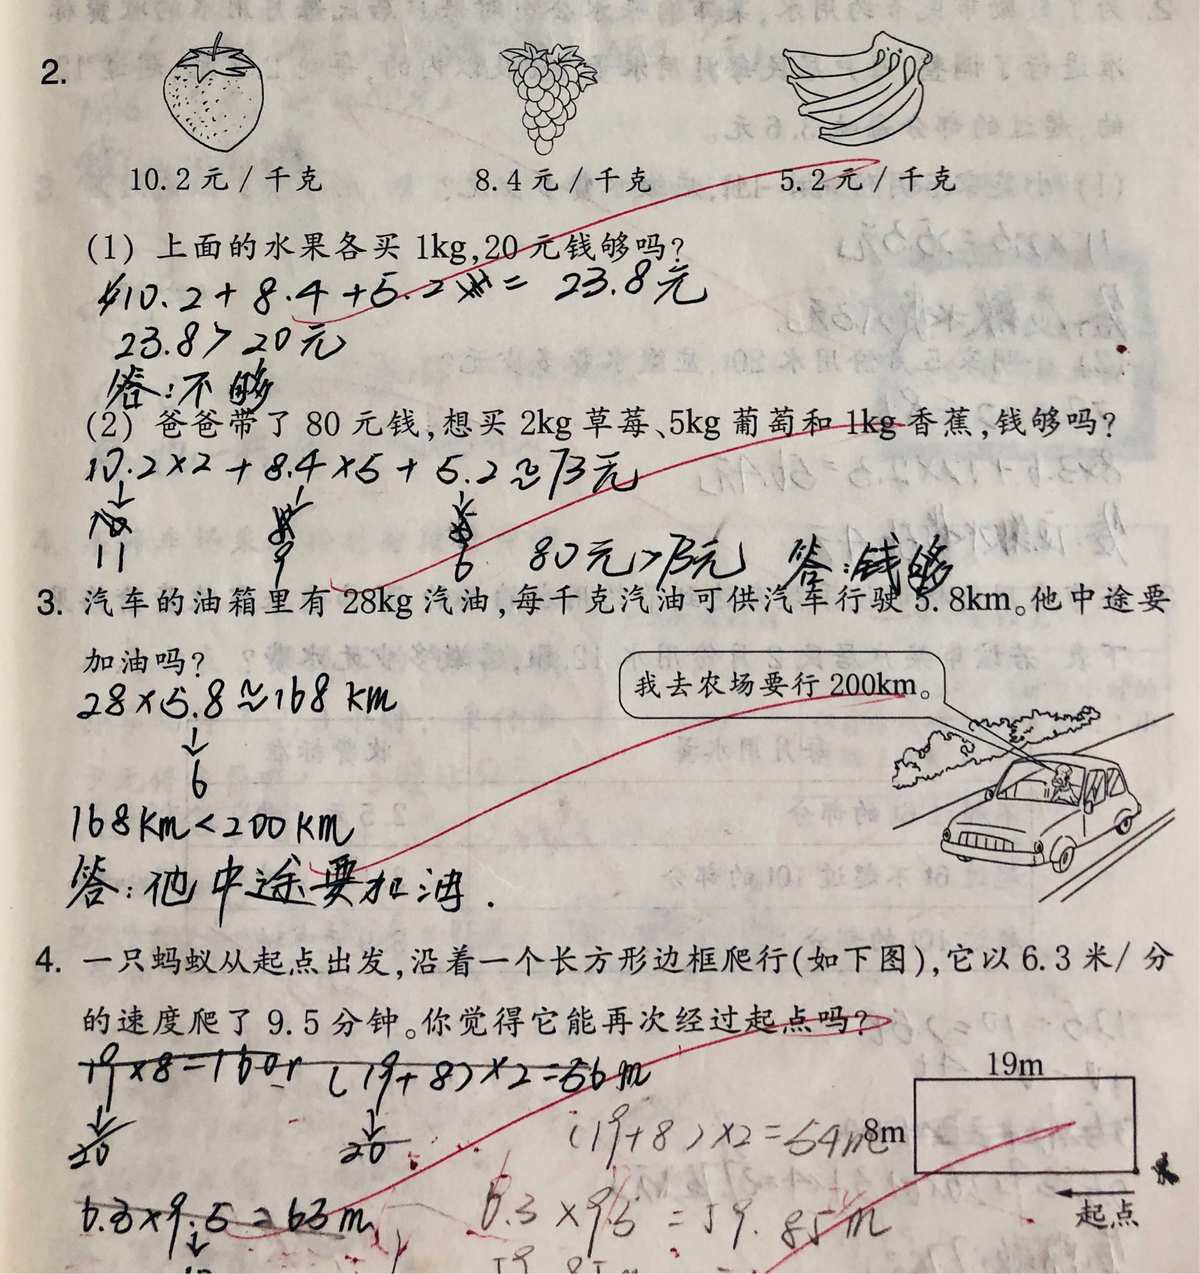 2.
10.2元/千克 8.4元/千克 5.2元/千克
(1) 上面的水果各买1kg,20元钱够吗?
10.2+8.4+5.2=23.8元
23.8>20元
答:不够
(2) 爸爸带了80元钱,想买2kg草莓、5kg葡萄和1kg香蕉,钱够吗?
10.2×2+8.4×5+5.2≈73元
11 9 6 80元>73元 答:钱够
3. 汽车的油箱里有28kg汽油,每千克汽油可供汽车行驶5.8km。他中途要
加油吗?
我去农场要行200km。
28×5.8≈168km
6
168km<200km
答:他中途要加油.
4. 一只蚂蚁从起点出发,沿着一个长方形边框爬行(如下图),它以6.3米/分
的速度爬了9.5分钟。你觉得它能再次经过起点吗?
(19+8)×2=56m
20 20
19m
(19+8)×2=54m
8m
6.3×9.5≈63m 6.3×9.5=59.85m
起点